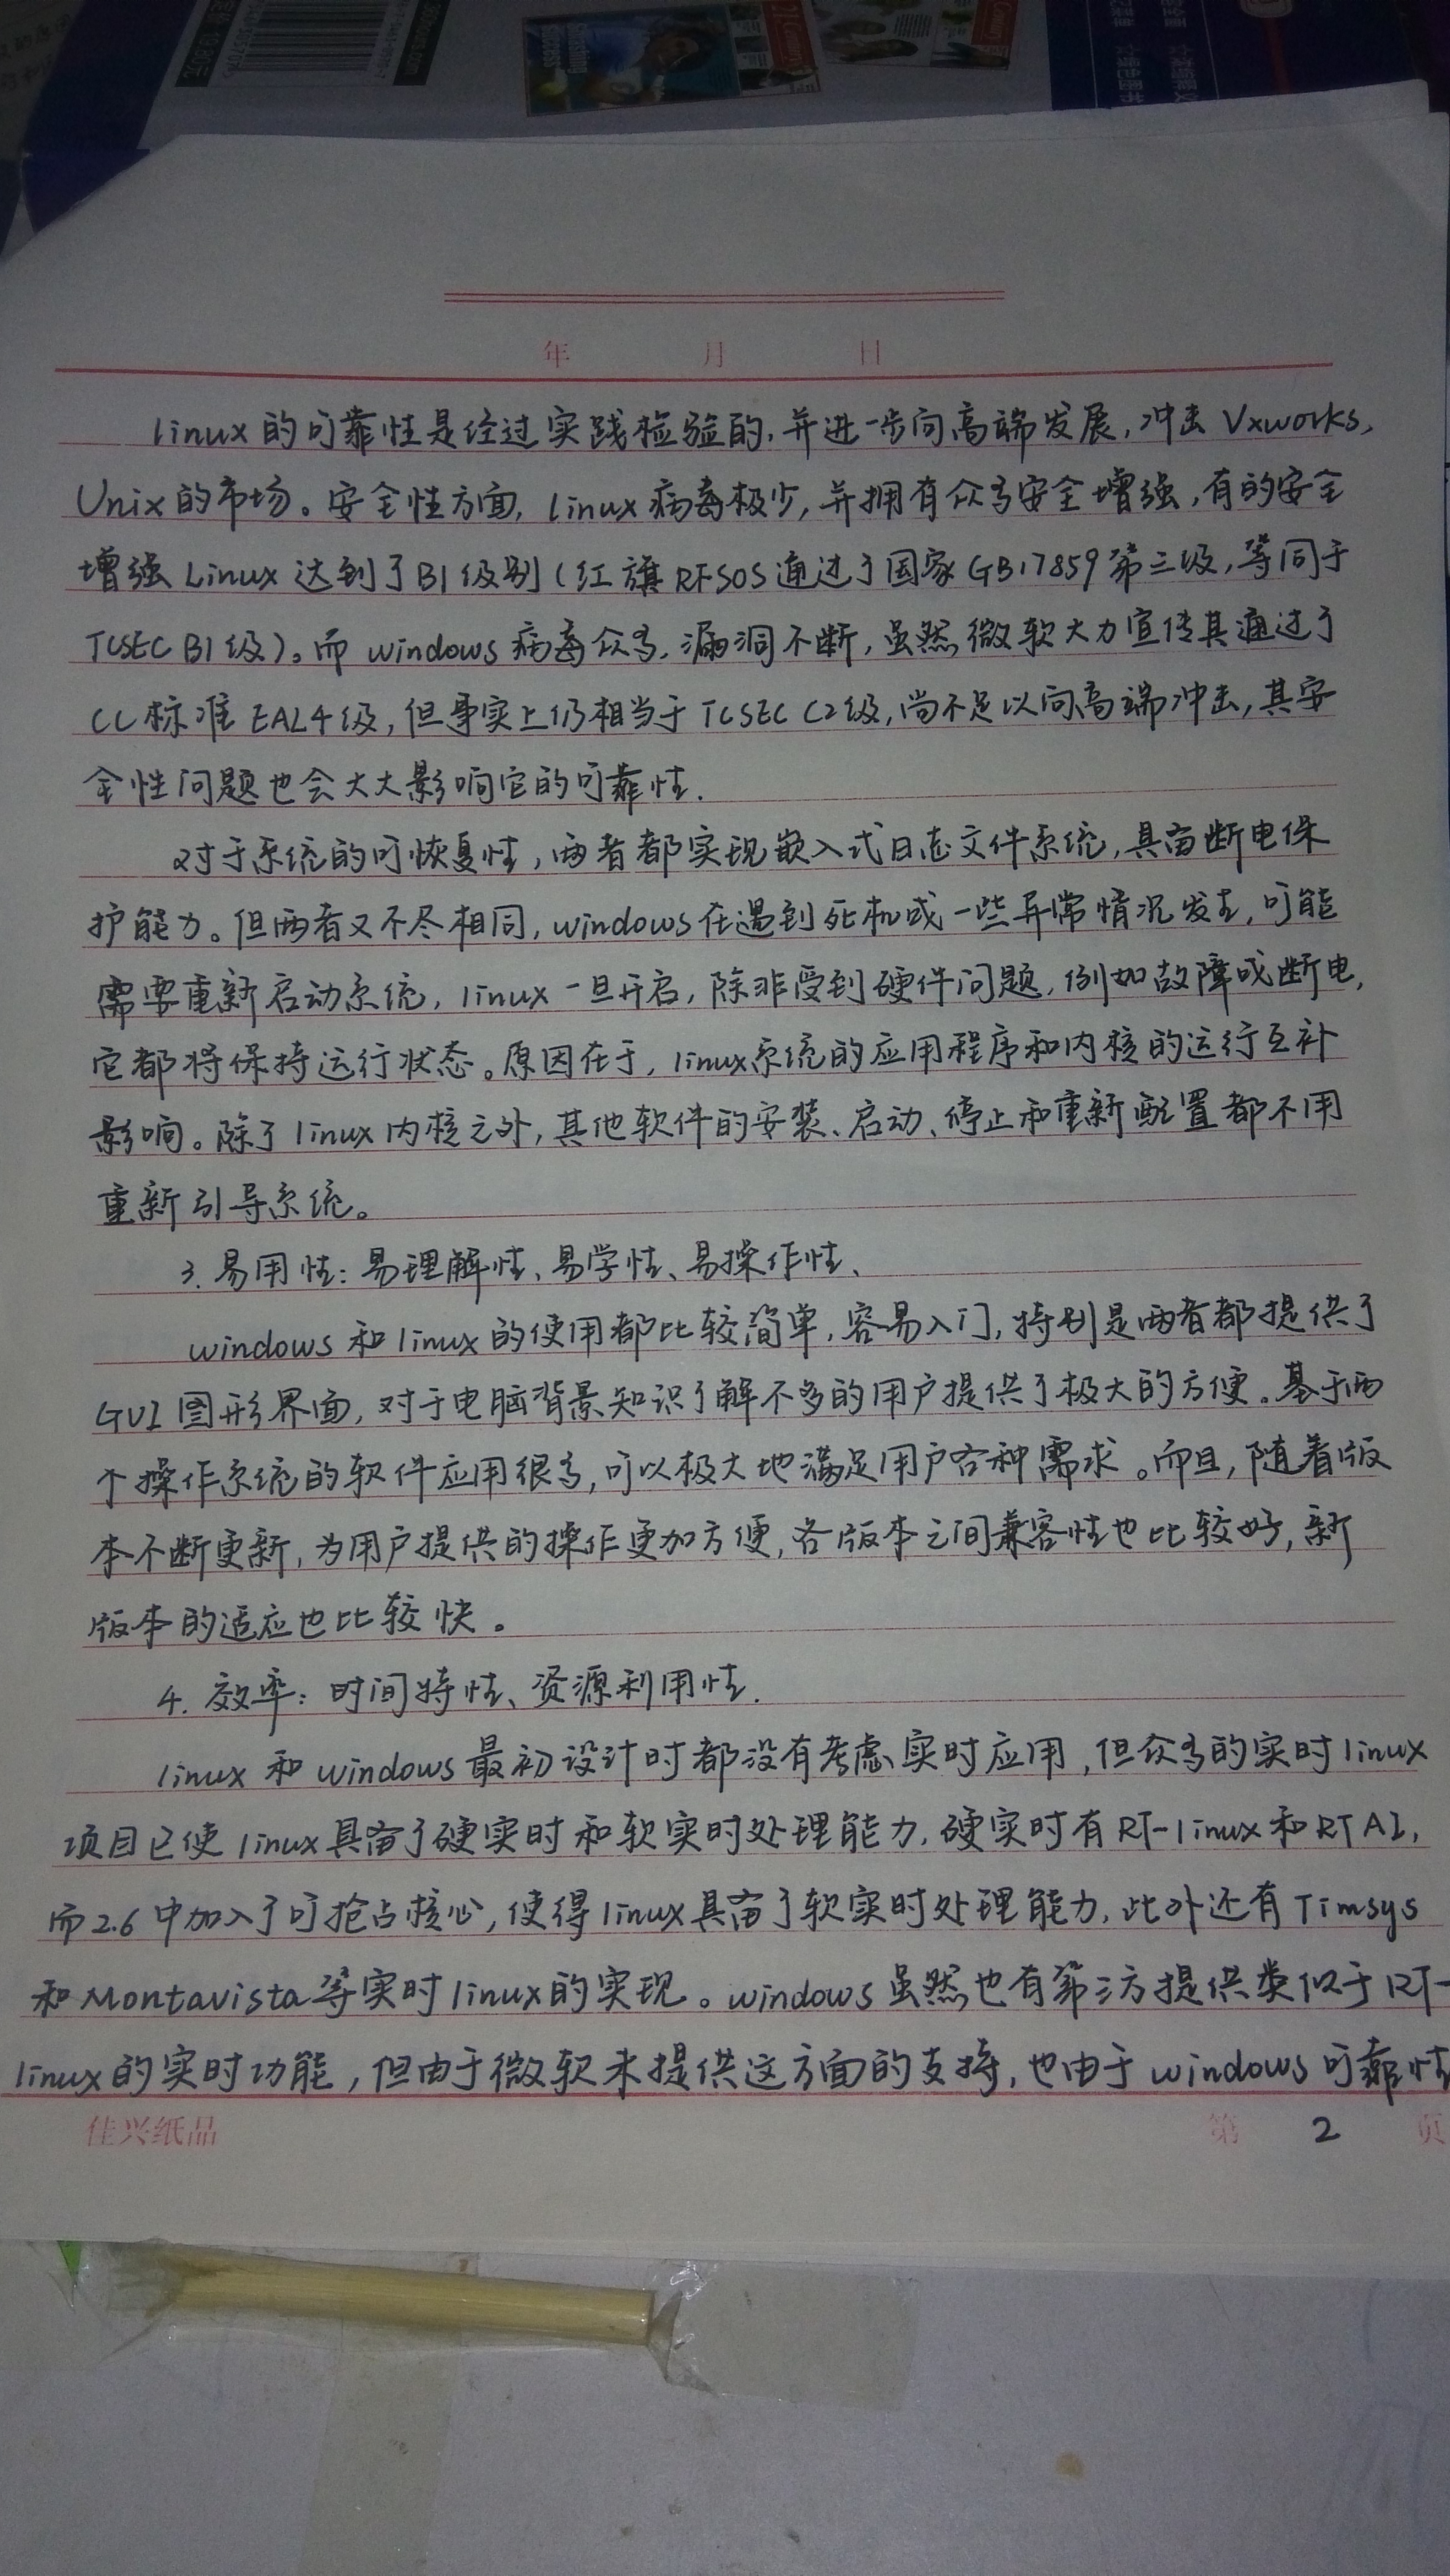 年 月 日
linux的可靠性是经过实践检验的,并进一步向高端发展,冲击Vxworks,
Unix的市场。安全性方面,linux病毒极少,并拥有众多安全增强,有的安全
增强Linux达到了B1级别(红旗RFSOS通过了国家GB17859第三级,等同于
TCSEC B1级)。而windows病毒众多,漏洞不断,虽然微软大力宣传其通过了
CC标准EAL4级,但事实上仍相当于TCSEC C2级,尚不足以向高端冲击,其安
全性问题也会大大影响它的可靠性.
对于系统的可恢复性,两者都实现嵌入式日志文件系统,具备断电保
护能力。但两者又不尽相同,windows在遇到死机或一些异常情况发生,可能
需要重新启动系统,linux一旦开启,除非受到硬件问题,例如故障或断电,
它都将保持运行状态。原因在于,linux系统的应用程序和内核的运行互补
影响。除了linux内核之外,其他软件的安装、启动、停止和重新配置都不用
重新引导系统。
3.易用性:易理解性、易学性、易操作性、
windows和linux的使用都比较简单,容易入门,特别是两者都提供了
GUI图形界面,对于电脑背景知识了解不多的用户提供了极大的方便。基于两
个操作系统的软件应用很多,可以极大地满足用户各种需求。而且,随着版
本不断更新,为用户提供的操作更加方便,各版本之间兼容性也比较好,新
版本的适应也比较快。
4.效率:时间特性、资源利用性.
linux和windows最初设计时都没有考虑实时应用,但众多的实时linux
项目已使linux具备了硬实时和软实时处理能力.硬实时有RT-linux和RTAI,
而2.6中加入了可抢占核心,使得linux具备了软实时处理能力.此外还有Timsys
和Montavista等实时linux的实现。windows虽然也有第三方提供类似于RT-
linux的实时功能,但由于微软未提供这方面的支持,也由于windows可靠性
佳兴纸品 第 2 页